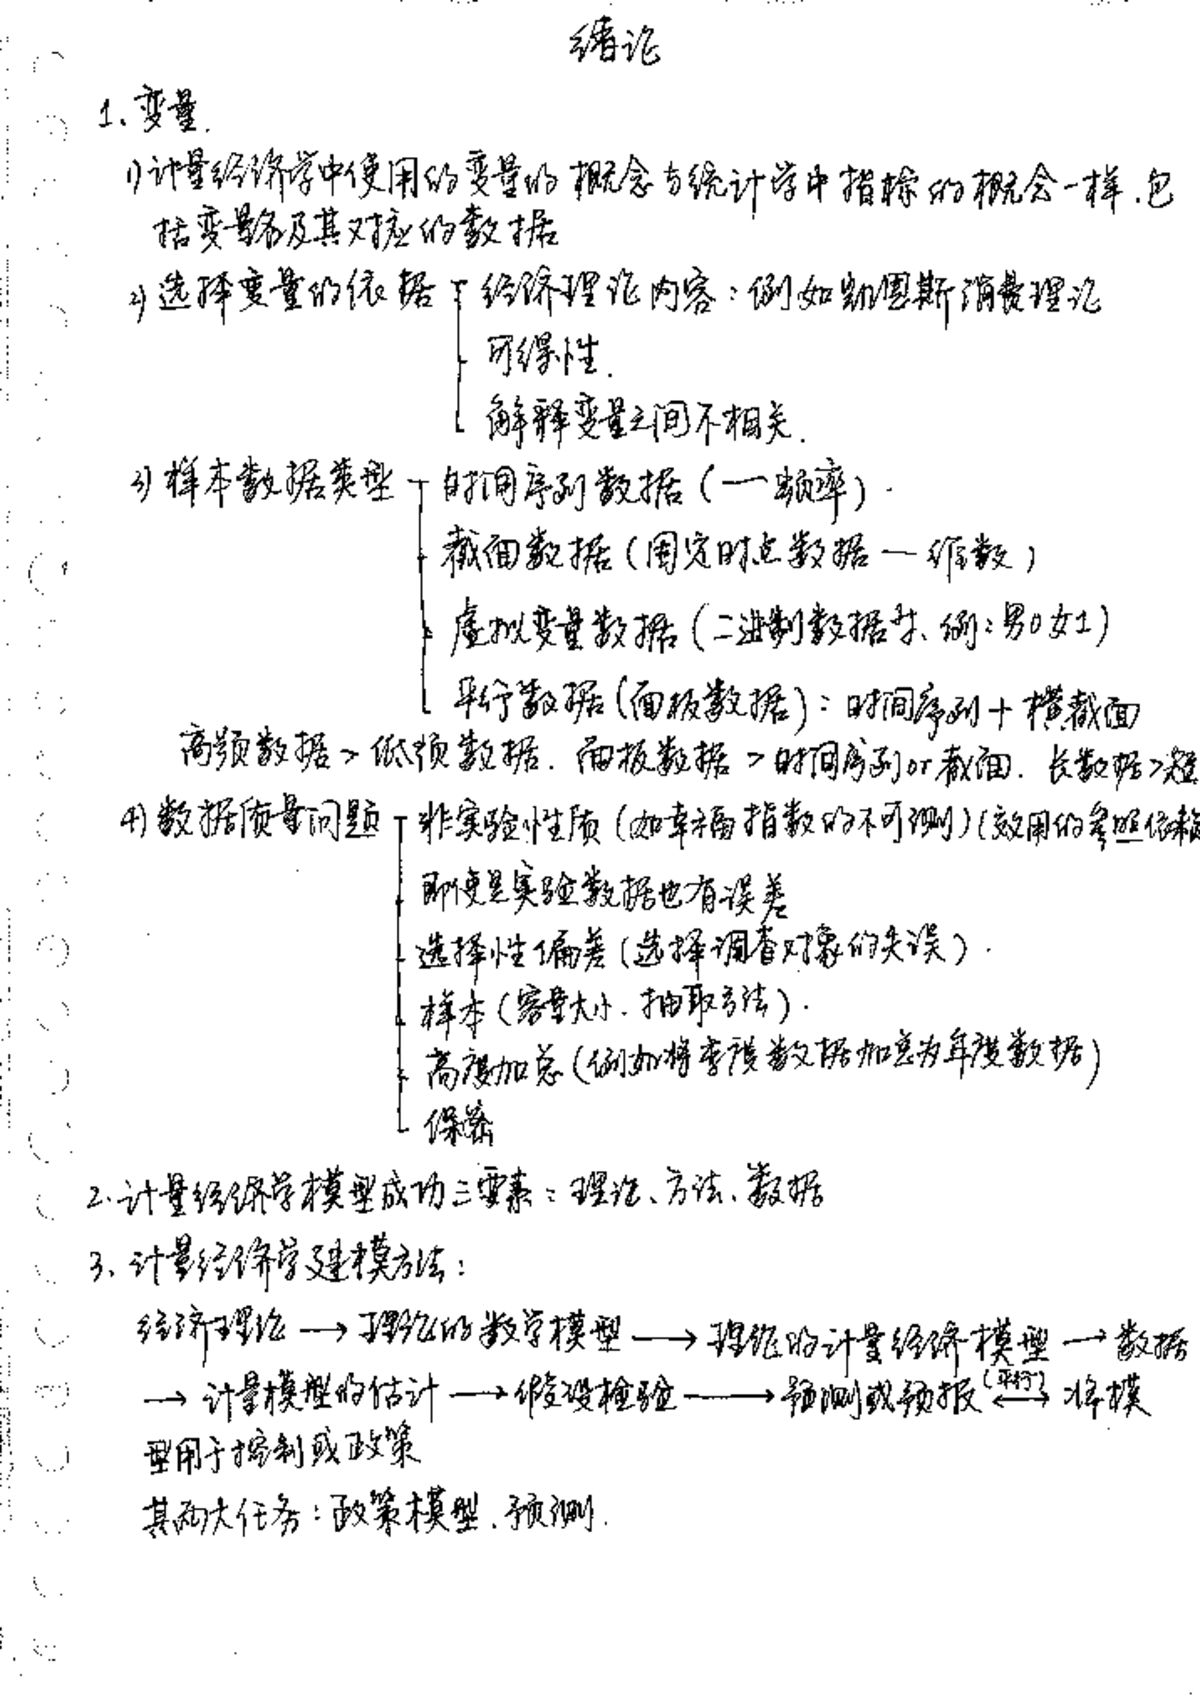 绪论
1、变量.
1)计量经济学中使用的变量的概念与统计学中指标的概念一样.包
括变量名及其对应的数据
2)选择变量的依据 经济理论内容：例如凯恩斯消费理论
可得性.
解释变量之间不相关.
3)样本数据类型 时间序列数据(一频率).
截面数据(固定时点数据一维数)
虚拟变量数据(二进制数据、例：男0女1)
平行数据(面板数据)：时间序列+横截面
高频数据>低频数据. 面板数据>时间序列or截面. 长数据>短
4)数据质量问题 非实验性质(如幸福指数的不可测)(效用的参照依赖
即使是实验数据也有误差
选择性偏差(选择调查对象的失误).
样本(容量大小.抽取方法).
高度加总(例如将季度数据加总为年度数据)
保密
2.计量经济学模型成功三要素：理论、方法、数据
3、计量经济学建模方法：
经济理论→理论的数学模型→理论的计量经济模型→数据
→计量模型的估计→假设检验→预测或预报(平行)↔将模
型用于控制或政策
其两大任务：政策模型.预测.